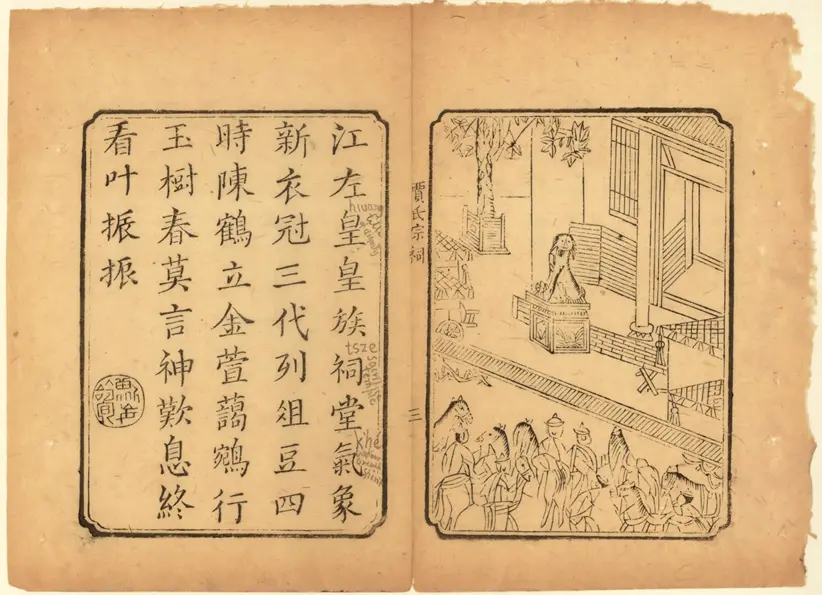 賈氏宗祠
三
江左皇皇族祠堂氣象
新衣冠三代列俎豆四
時陳鶴立金萱藹鵷行
玉樹春莫言神歎息終
看叶振振
hiuang
tsze
khé